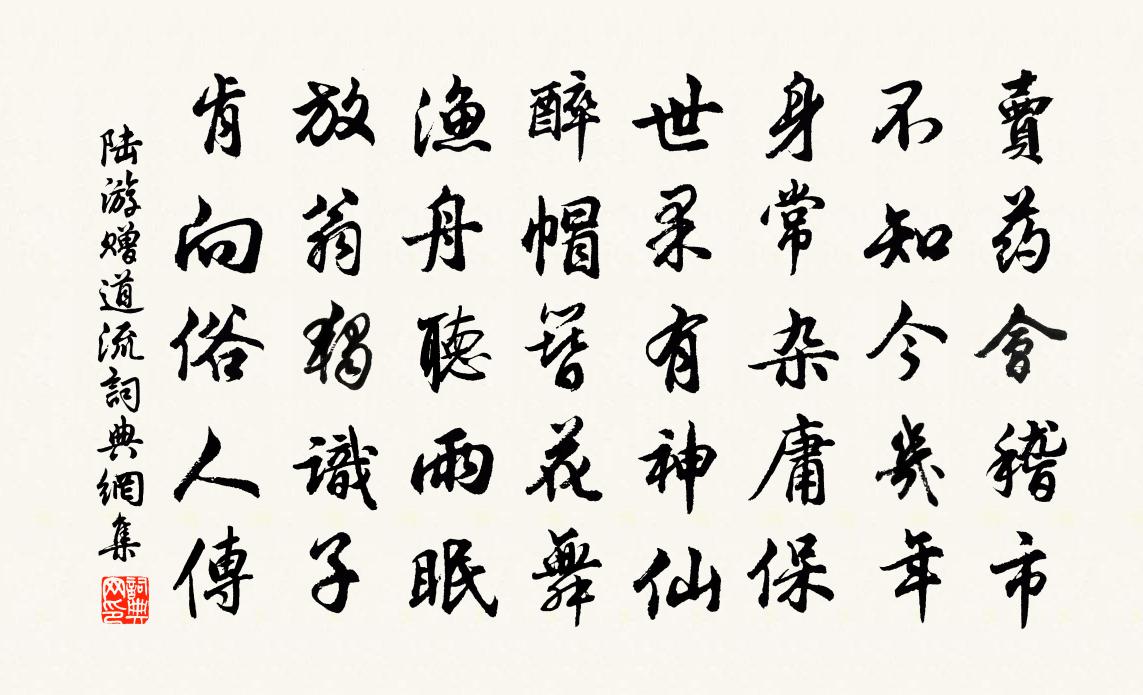 賣药會稽市
不知今幾年
身常杂庸保
世果有神仙
醉帽簪花舞
渔舟聽雨眠
放翁獨識子
肯向俗人傳
陆游贈道流詞典網集
詞典网印